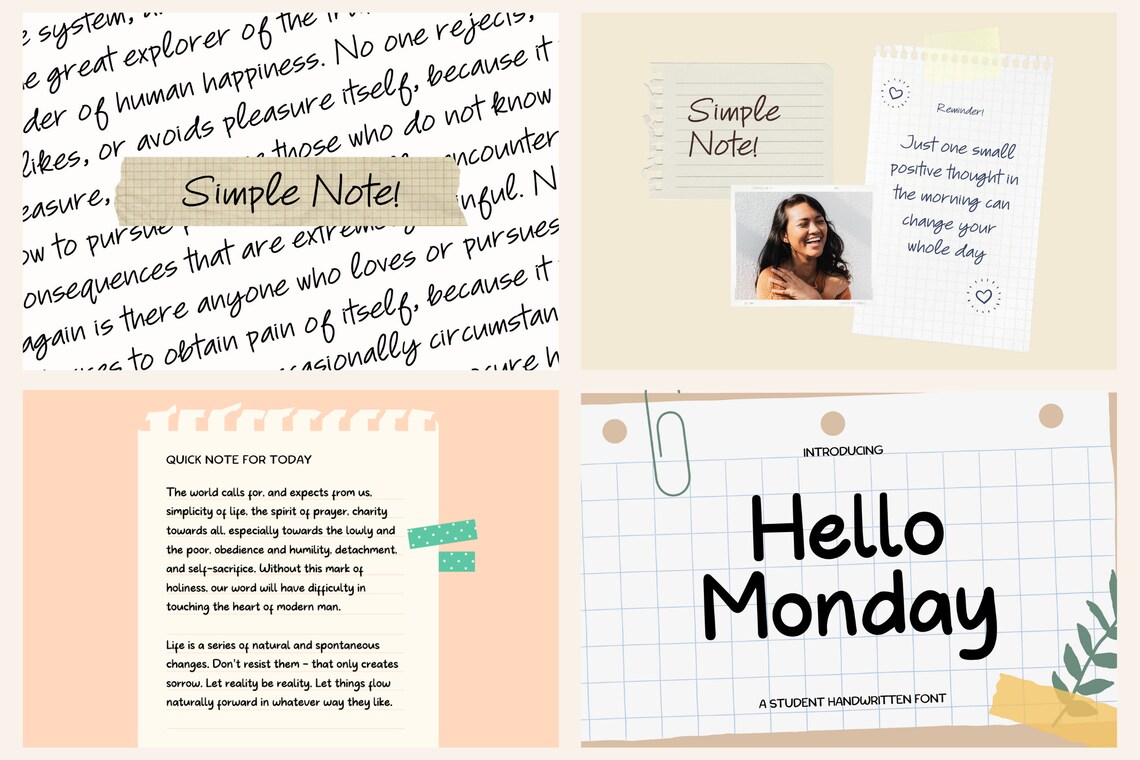 system,
great explorer of the
of human happiness. No one rejects,
likes, or avoids pleasure itself, because it
easure, those who do not know
Simple Note!
ow to pursue encounter
onsequences that are extreme inful. N
again is there anyone who loves or pursues
to obtain pain of itself, because it
casionally circumstan
Simple
Note!
Reminder!
Just one small
positive thought in
the morning can
change your
whole day
QUICK NOTE FOR TODAY
The world calls for, and expects from us,
simplicity of life, the spirit of prayer, charity
towards all, especially towards the lowly and
the poor, obedience and humility, detachment,
and self-sacrifice. Without this mark of
holiness, our word will have difficulty in
touching the heart of modern man.
Life is a series of natural and spontaneous
changes. Don't resist them - that only creates
sorrow. Let reality be reality. Let things flow
naturally forward in whatever way they like.
INTRODUCING
Hello
Monday
A STUDENT HANDWRITTEN FONT